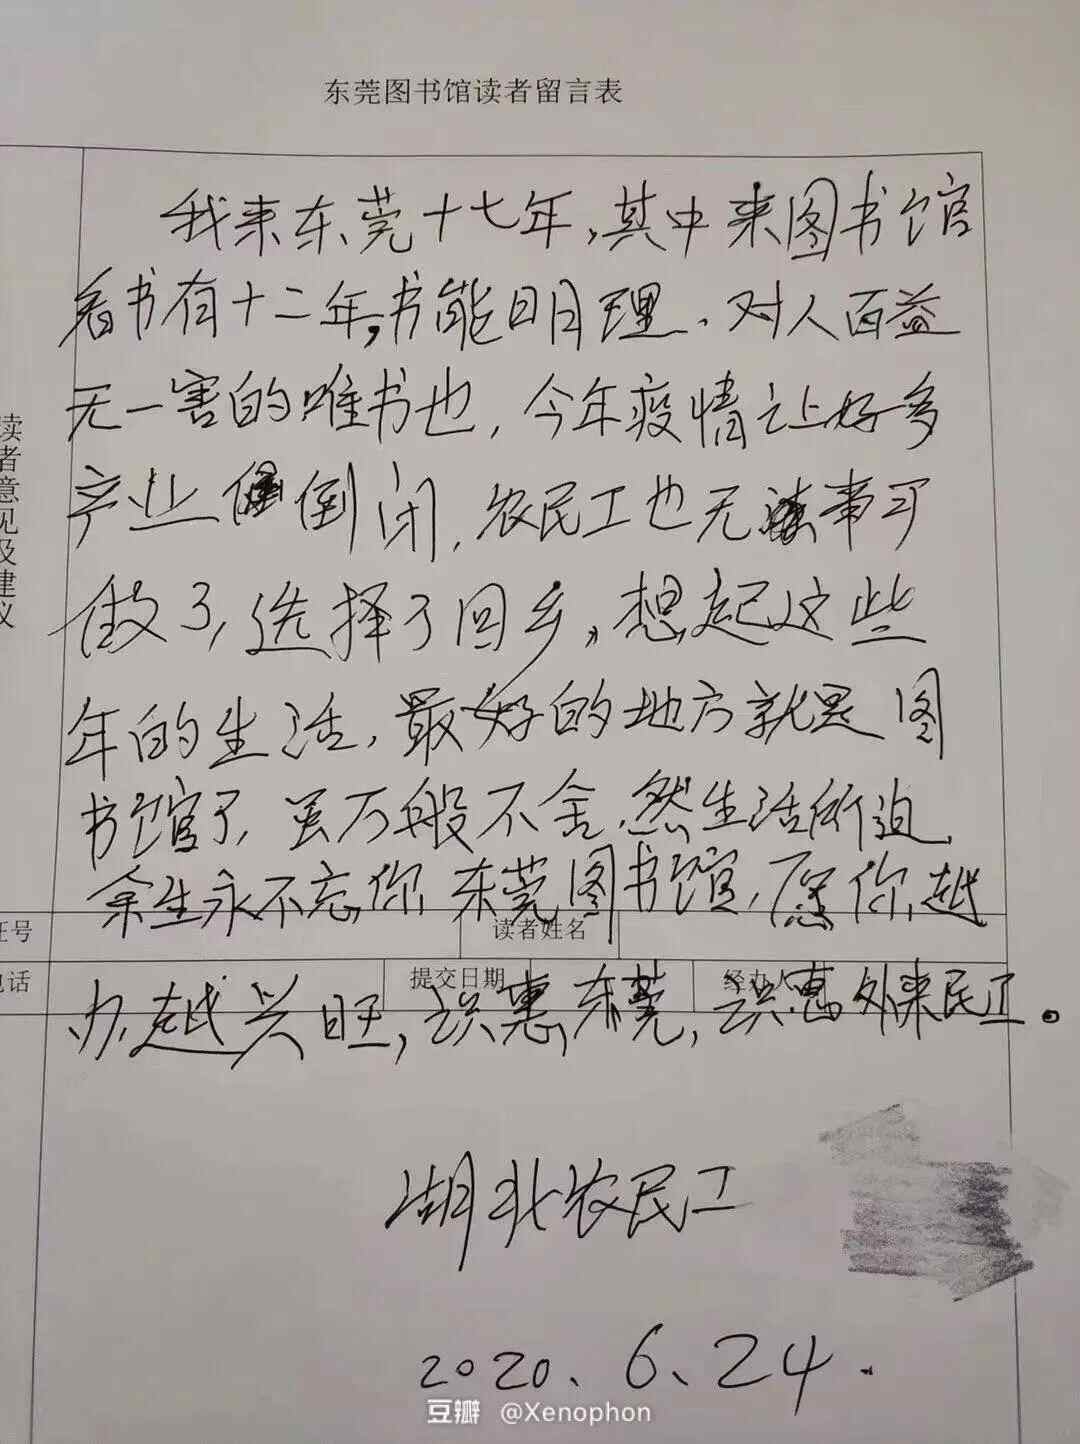 东莞图书馆读者留言表
我来东莞十七年,其中来图书馆
看书有十二年,书能明理、对人百益
无一害的唯书也,今年疫情让好多
产业倒闭,农民工也无事可
做了,选择了回乡。想起这些
年的生活,最好的地方就是图
书馆了,虽万般不舍,然生活所迫,
余生永不忘你,东莞图书馆,愿你越
办越兴旺,识惠东莞,识惠外来民工。
读者意见及建议
证号
读者姓名
电话
提交日期
经办人
湖北农民工
2020、6、24.
豆瓣 @Xenophon